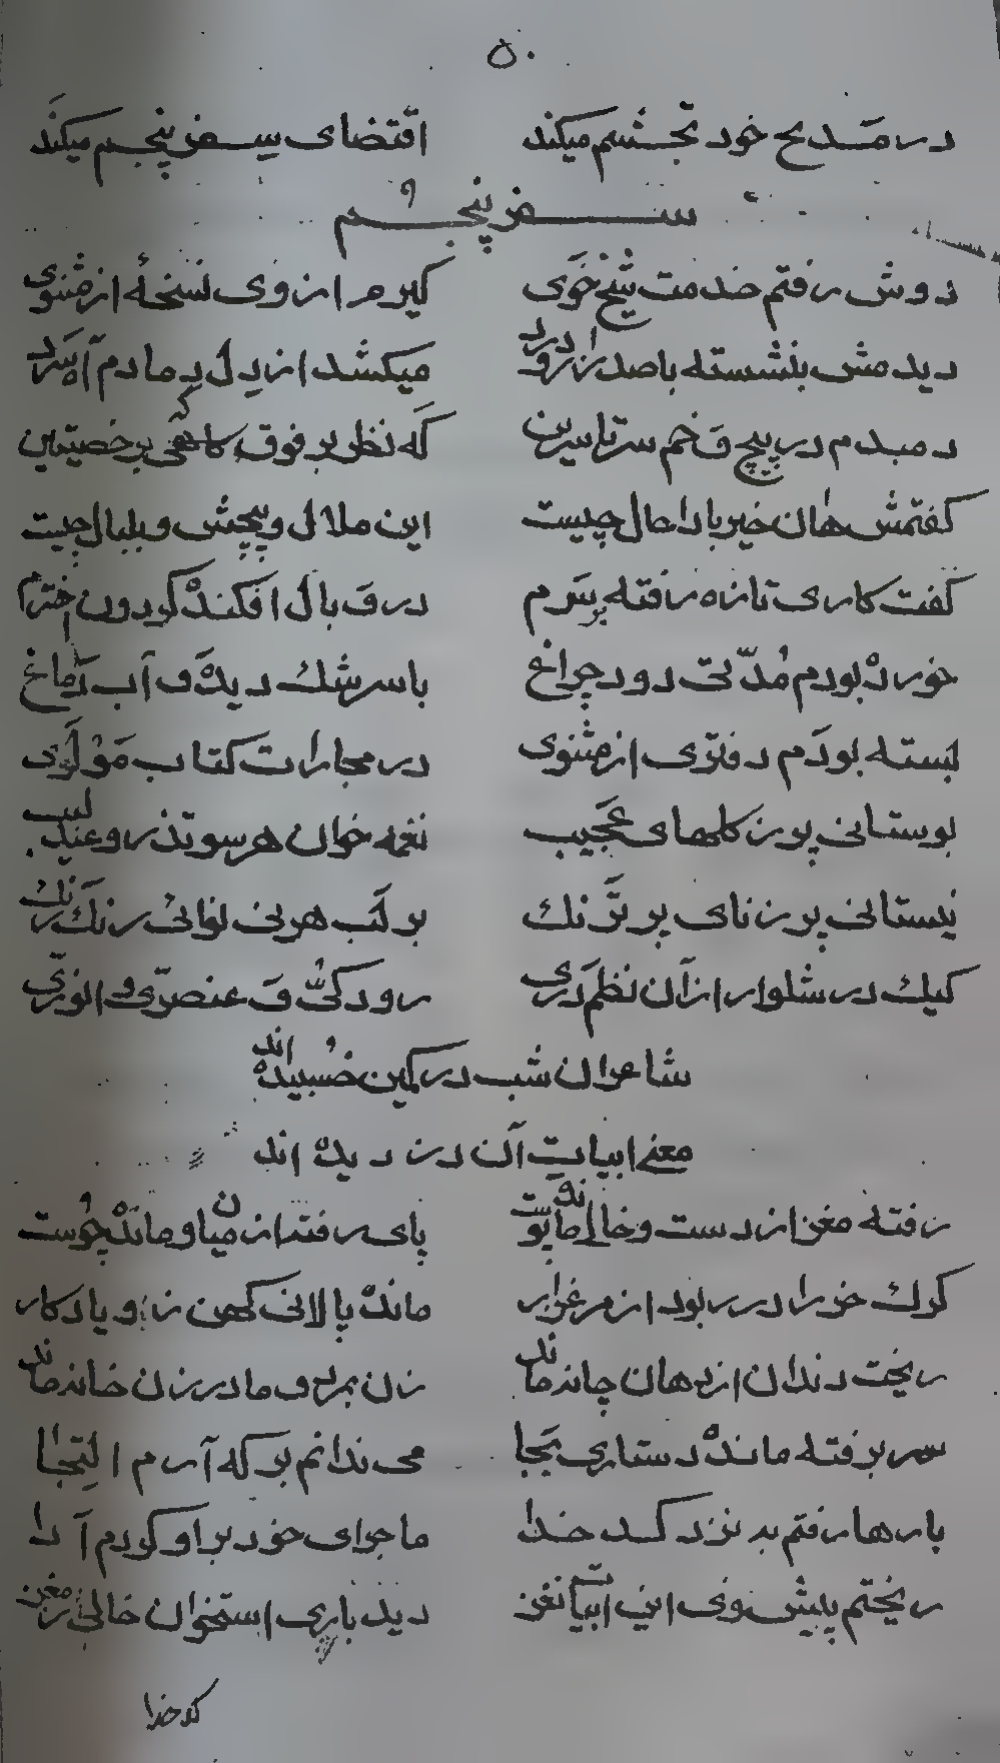 ۵۰
در مدیح خود تجشم میکند اقتضای سفر پنجم میکند
سفر پنجم
دوش رفتم خدمت شیخ خوی کیرم از وی نسخهٔ از مثنوی
دیدمش بنشسته با صد درد میکشد از دل دمادم آه سرد
دمبدم در پیچ و خم سرتاسرین که نظر بر فوق کاهی بر خصیتین
کفتمش هان خیر بادا حال چیست این ملال و پیچش و بلبال چیست
کفت کاری تازه رفته بر سرم در وبال افکنده کردون اخترم
خورده بودم مدّتی دود چراغ با سرشک دیده و آب دماغ
بسته بودم دفتری از مثنوی در مجارات کتاب مولوی
بوستانی پر ز کلهای عجیب نغمه خوان هر سو تذرو عندلیب
نیستانی پر ز نای پر ترنک بر لب هر نی نوائی رنک رنک
کیک در شلوار از آن نظم دری رودکیّ و عنصریّ و انوریّ
شاعران شب در کمین خسبیده اند
معنی ابیات آن دزدیده اند
رفته مغز از دست و خالی مانده پوست پای رفته از میان و مانده چوست
کرک خر را در ربود از مرغزار مانده پالانی کهن زو یادکار
ریخت دندان از دهان چانه ماند زن بمرد و مادر زن خانه ماند
سر برفته مانده دستاری بجا می ندانم بر که آرم التجا
بارها رفتم به نزد کدخدا ماجرای خود بر او کردم ادا
ریختم پیش وی این ابیات نغز دید باری استخوان خالی ز مغز
کدخدا